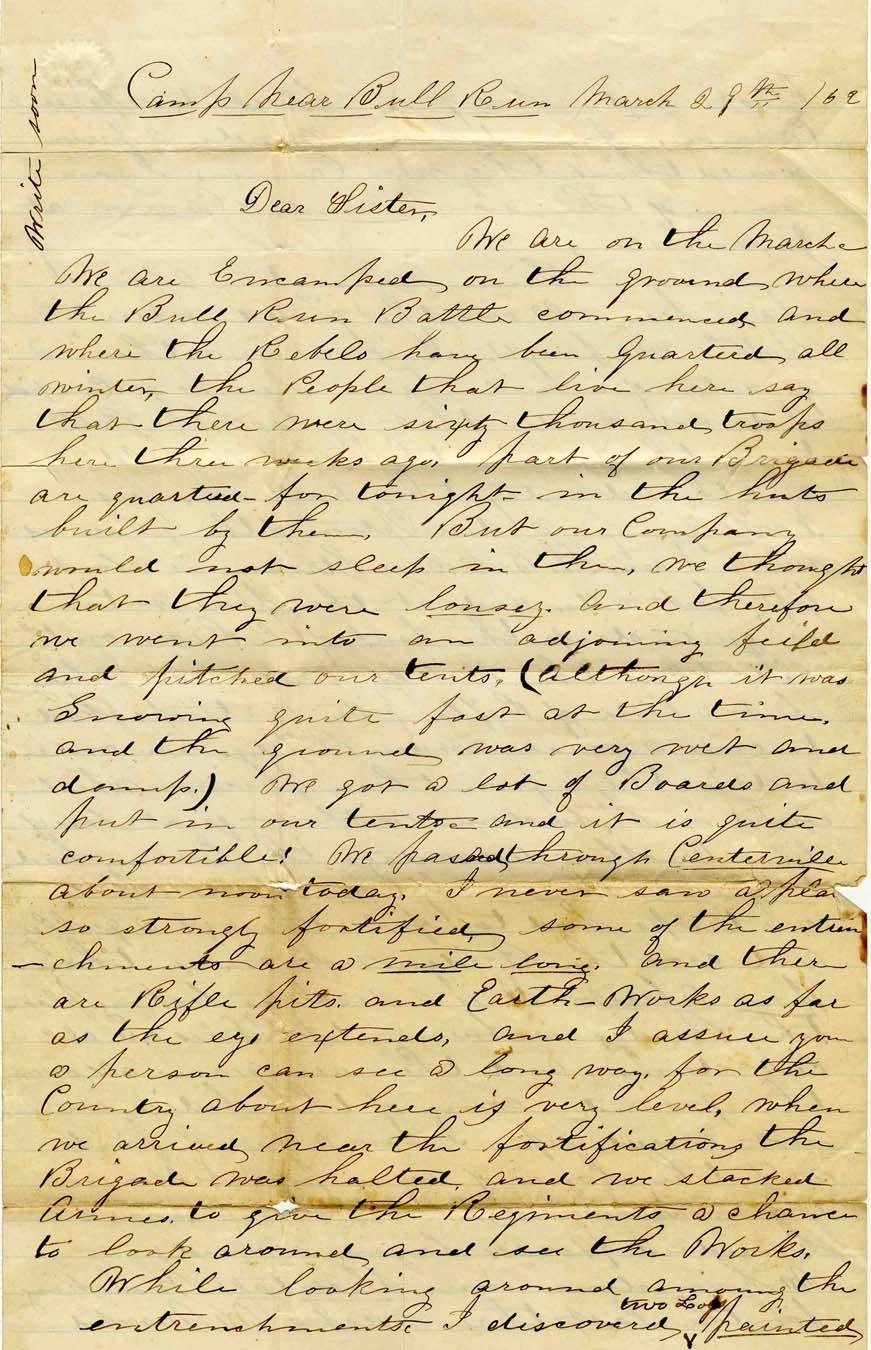 Camp Near Bull Run March 29th /62
Write soon
Dear Sister,
We are on the March
We are Encamped on the ground where
the Bull Run Battle commenced and
where the Rebels have been Quarterd all
winter, the People that live here say
that there were sixty thousand troops
here three weeks ago, part of our Brigade
are quarterd for tonight in the huts
built by them. But our Company
would not sleep in them, we thought
that they were lousey. and therefore
we went into an adjoining feild
and pitched our tents, (although it was
Snowing quite fast at the time,
and the ground was very wet and
damp.) We got a lot of Boards and
put in our tents and it is quite
comfortible! We passed through Centerville
about noon today, I never saw a pla
so strongly fortified, some of the entren
-chments are a mile long. and there
are Rifle pits. and Earth-Works as far
as the eye extends, and I assure you
a person can see a long way, for the
Country about here is very level, when
we arrived near the fortifications the
Brigade was halted, and we stacked
Armes. to give the Regiments a chance
to look around and see the Works.
While looking around amoung the
entrenchments I discovered two Logs painted